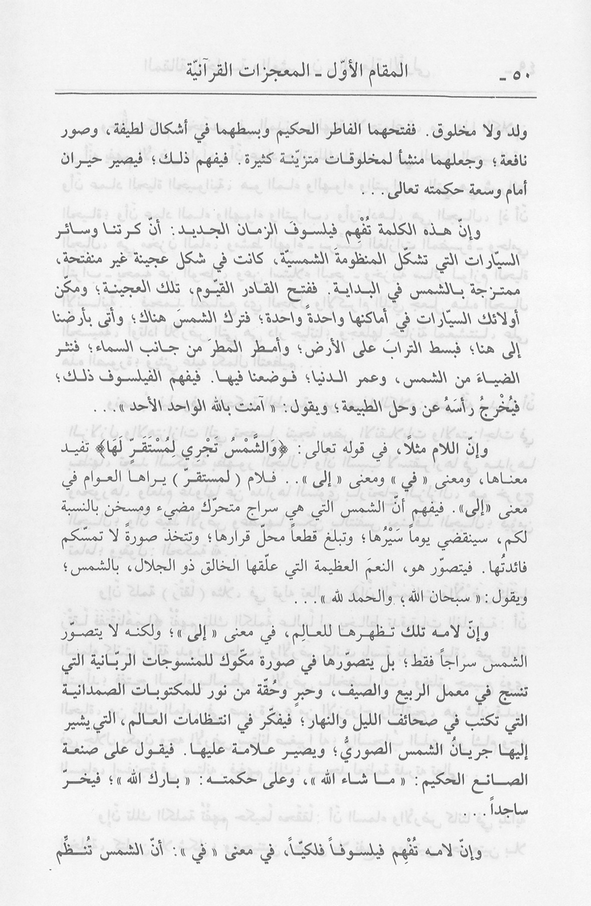 - ٥٠ المقام الأوّل - المعجزات القرآنيّة
ولد ولا مخلوق. ففتحهما الفاطر الحكيم وبسطهما في أشكال لطيفة، وصور
نافعة؛ وجعلهما منشأ لمخلوقات متزيّنة كثيرة. فيفهم ذلك؛ فيصير حيران
أمام وسعة حكمته تعالى...
وإنّ هذه الكلمة تُفْهِم فيلسوفَ الزمان الجديد: أنّ كرتنا وسائر
السيّارات التي تشكّل المنظومة الشمسيّة، كانت في شكل عجينة غير منفتحة،
ممتزجة بالشمس في البداية. ففتح القادر القيّوم، تلك العجينة؛ ومكّن
أولائك السيّارات في أماكنها واحدةً واحدة؛ فترك الشمسَ هناك؛ وأتى بأرضنا
إلى هنا؛ فبسط الترابَ على الأرض؛ وأمطر المطرَ من جانب السماء؛ فنثر
الضياءَ من الشمس، وعمر الدنيا؛ فوضعنا فيها. فيفهم الفيلسوف ذلك؛
فيُخْرِجُ رأسَهُ عن وحل الطبيعة؛ ويقول: « آمنت بالله الواحد الأحد »...
وإنّ اللام مثلًا، في قوله تعالى: ﴿وَالشَّمْسُ تَجْرِي لِمُسْتَقَرٍّ لَهَا﴾ تفيد
معناها، ومعنى « في » ومعنى « إلى ».. فلام ( لمستقرّ ) يراها العوام في
معنى «إلى». فيفهم أنّ الشمس التي هي سراج متحرّك مضيء ومسخن بالنسبة
لكم، سينقضي يوماً سَيْرُها؛ وتبلغ قطعاً محلّ قرارها؛ وتتخذ صورةً لا تمسّكم
فائدتُها. فيتصوّر هو، النعمَ العظيمة التي علّقها الخالق ذو الجلال، بالشمس؛
ويقول: « سبحان الله؛ والحمد لله »...
وإنّ لامه تلك تظهرها للعالِم، في معنى « إلى »؛ ولكنه لا يتصوّر
الشمس سراجاً فقط؛ بل يتصوّرها في صورة مكّوك للمنسوجات الربّانية التي
تنسج في معمل الربيع والصيف، وحبرٍ وحُقّة من نور للمكتوبات الصمدانية
التي تكتب في صحائف الليل والنهار؛ فيفكّر في انتظامات العالم، التي يشير
إليها جريانُ الشمس الصوريُّ؛ ويصير علامة عليها. فيقول على صنعة
الصانع الحكيم: « ما شاء الله »، وعلى حكمته: « بارك الله »؛ فيخرّ
ساجداً...
وإنّ لامه تُفْهِم فيلسوفاً فلكيّاً، في معنى « في »: أنّ الشمس تُنظِّم